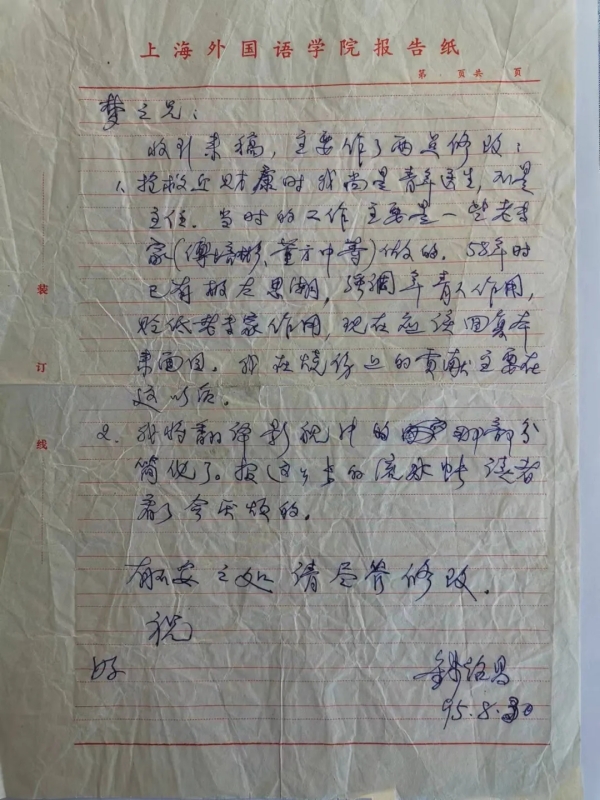 上海外国语学院报告纸
第 页共 页
梦之兄:
收到来稿,主要作了两点修改:
1. 抢救丘财康时我尚是青年医生,不是
主任.当时的工作主要是一些老专
家(傅培彬、董方中等)做的.58年时
已有极左思潮,强调年青人作用,
贬低老专家作用,现在应该回复本
来面目。我在烧伤上的贡献主要在
这以后。
2. 我将翻译影视中的 那部分
简化了。报 的流水帐读者
看了会厌烦的。
有不妥之处请尽管修改.
祝
好
95.8.30
装
订
线